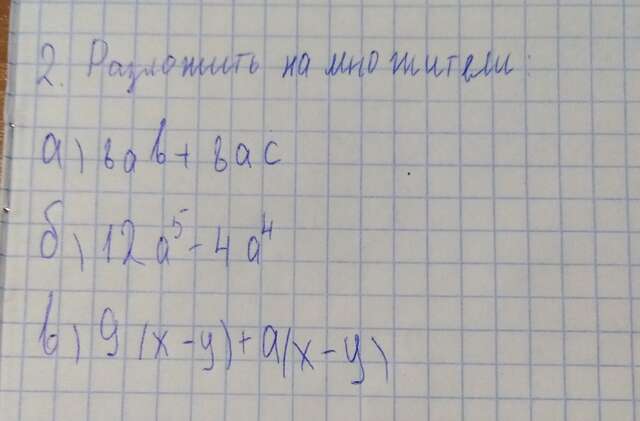 2. Разложить на множители:
а) 8ab + 8ac
б) 12a⁵ - 4a⁴
в) 9(x-y)+a(x-y)